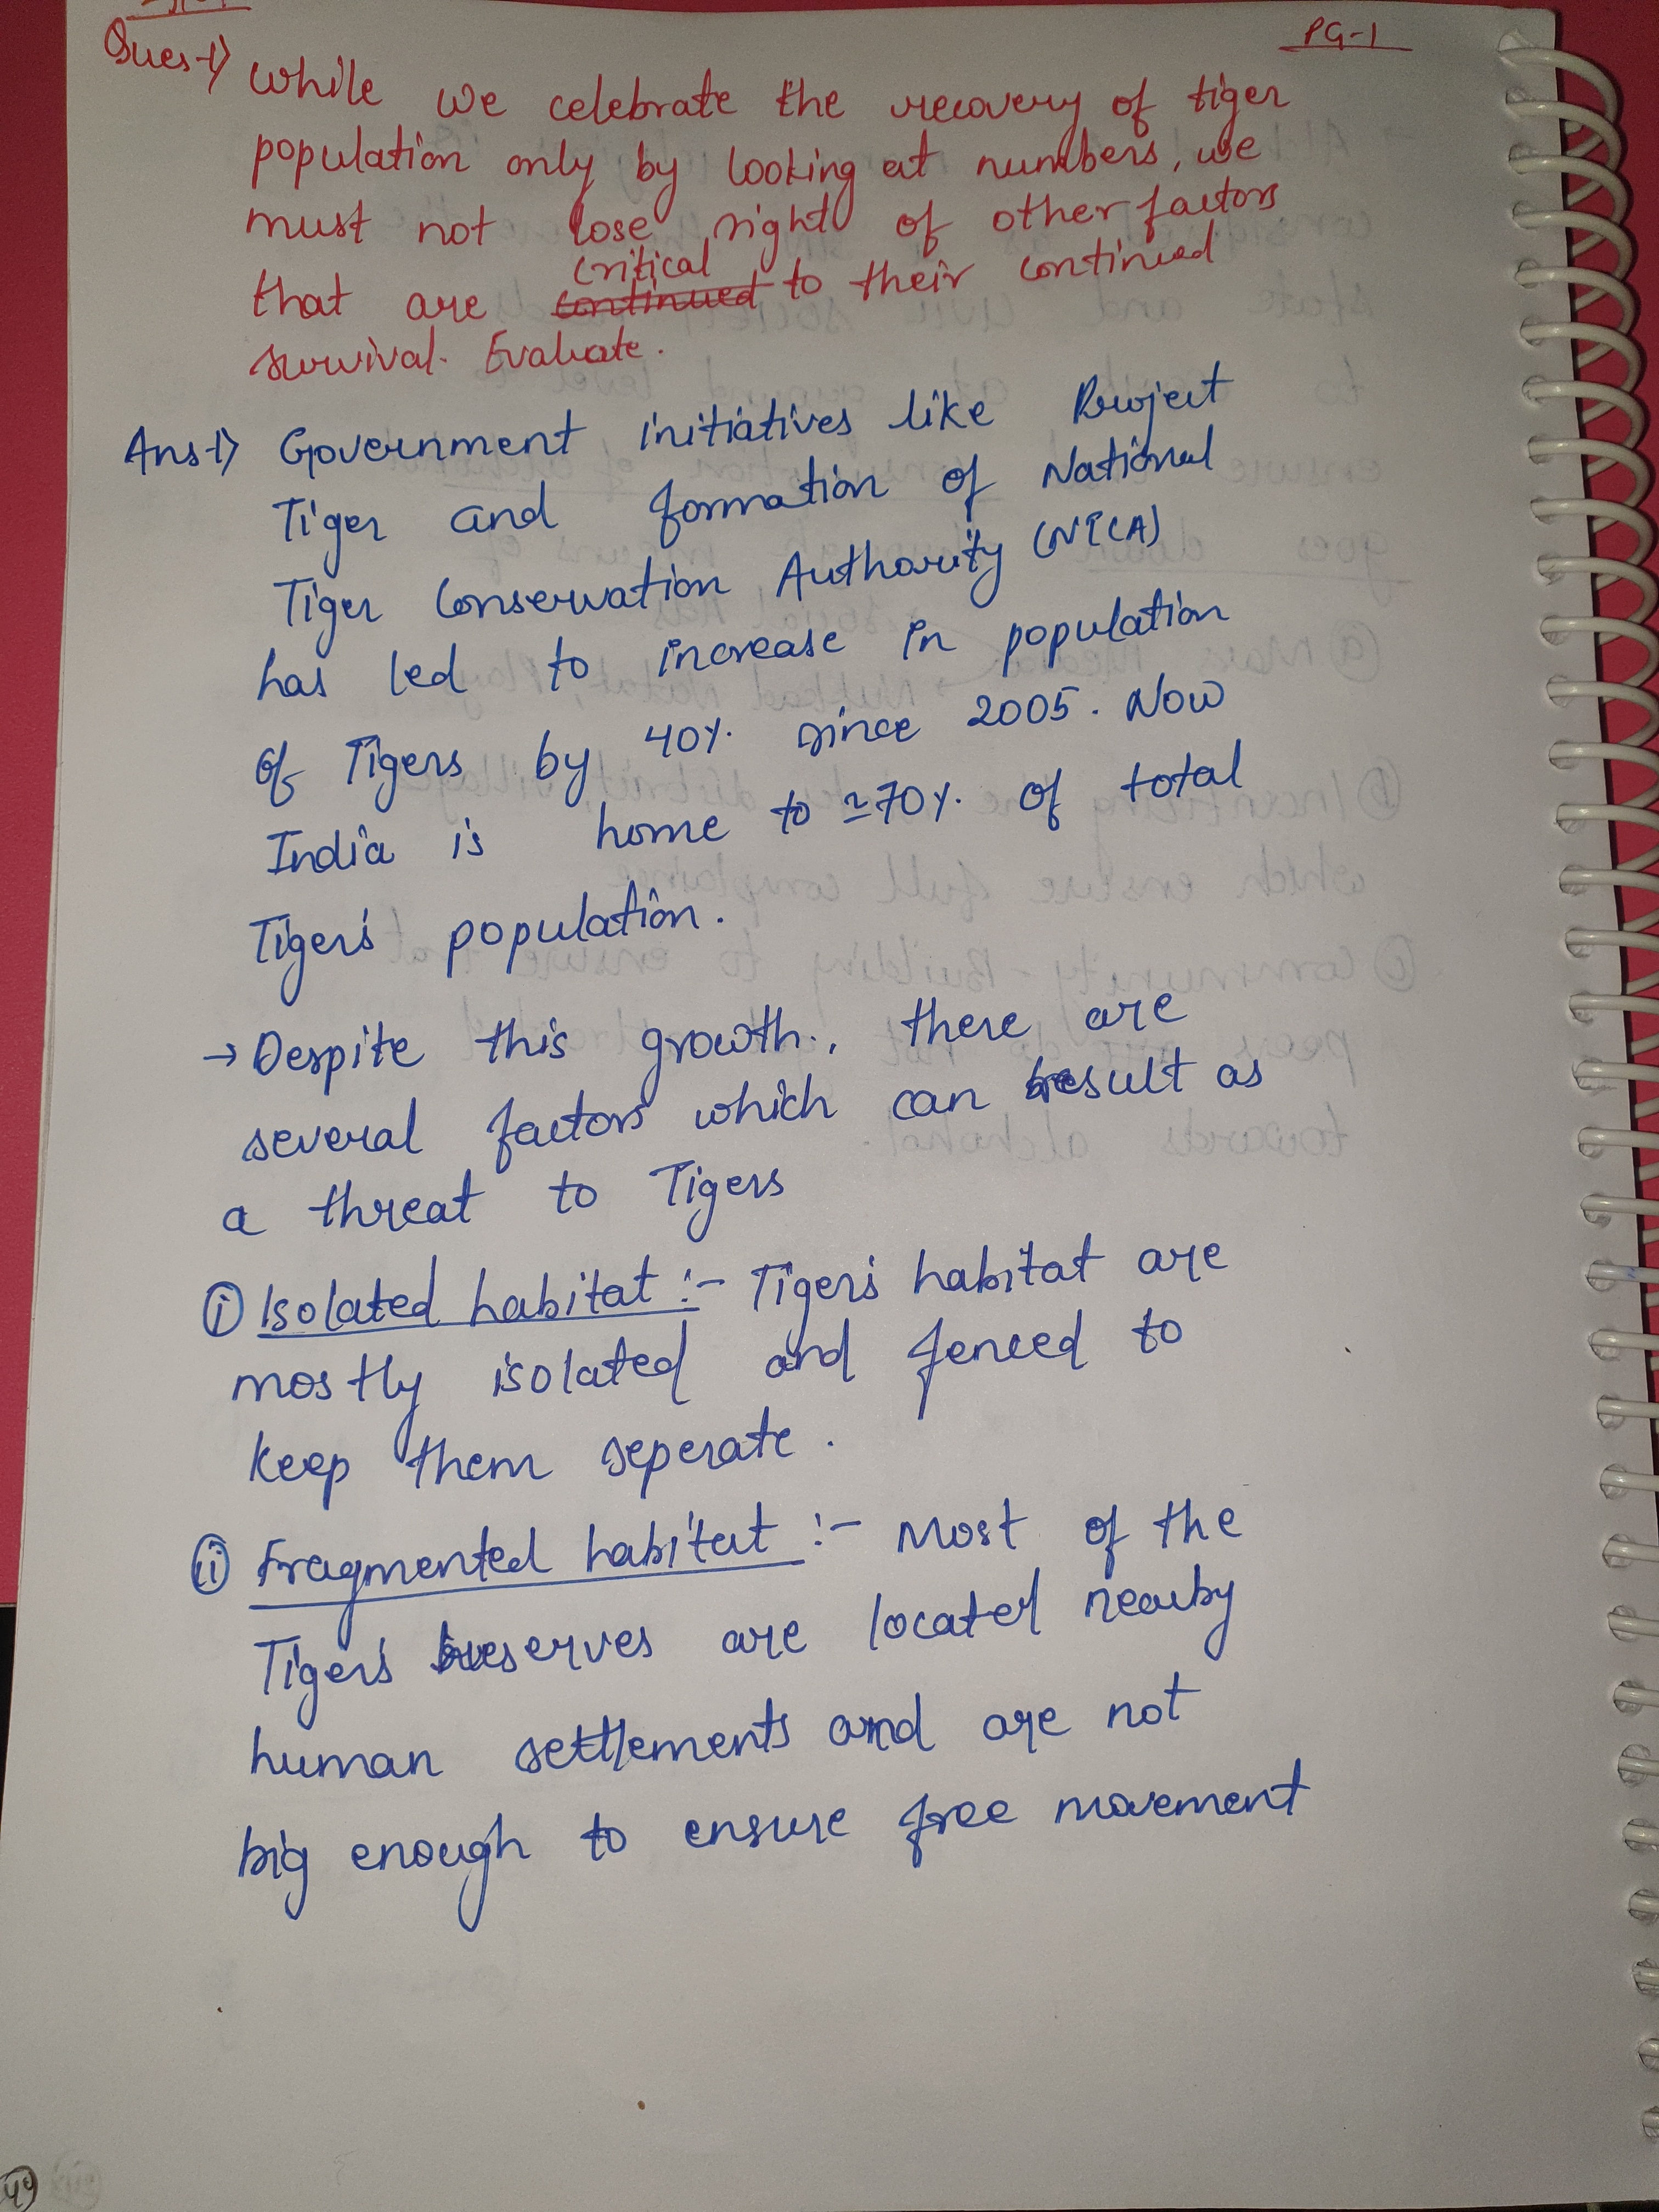 Ques-1) While we celebrate the recovery of tiger
PG-1
population only by looking at numbers, we
must not lose sight of other factors
critical
that are continued to their continued
survival. Evaluate.
Ans-1) Government initiatives like Project
Tiger and formation of National
Tiger Conservation Authority (NTCA)
has led to increase in population
of Tigers by 40%. since 2005. Now
India is home to ≃70%. of total
Tiger's population.
→ Despite this growth, there are
several factors which can result as
a threat to Tigers
(i) Isolated habitat :- Tiger's habitat are
mostly isolated and fenced to
keep them seperate.
(ii) Fragmented habitat :- Most of the
Tiger's reserves are located nearby
human settlements and are not
big enough to ensure free movement